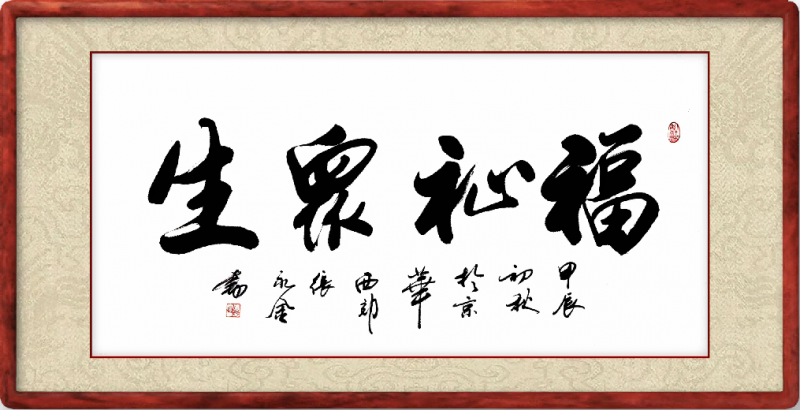 福祉眾生
甲辰初秋於京華西郊張永金書